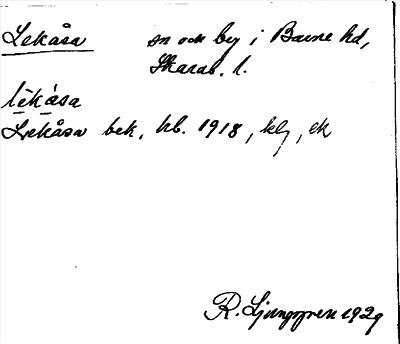 Lekåsa sn och by i Barne hd,
Skarab. l.
lèkása
Lekåsa bek. kb. 1918, klg, ek
R. Ljunggren 1929